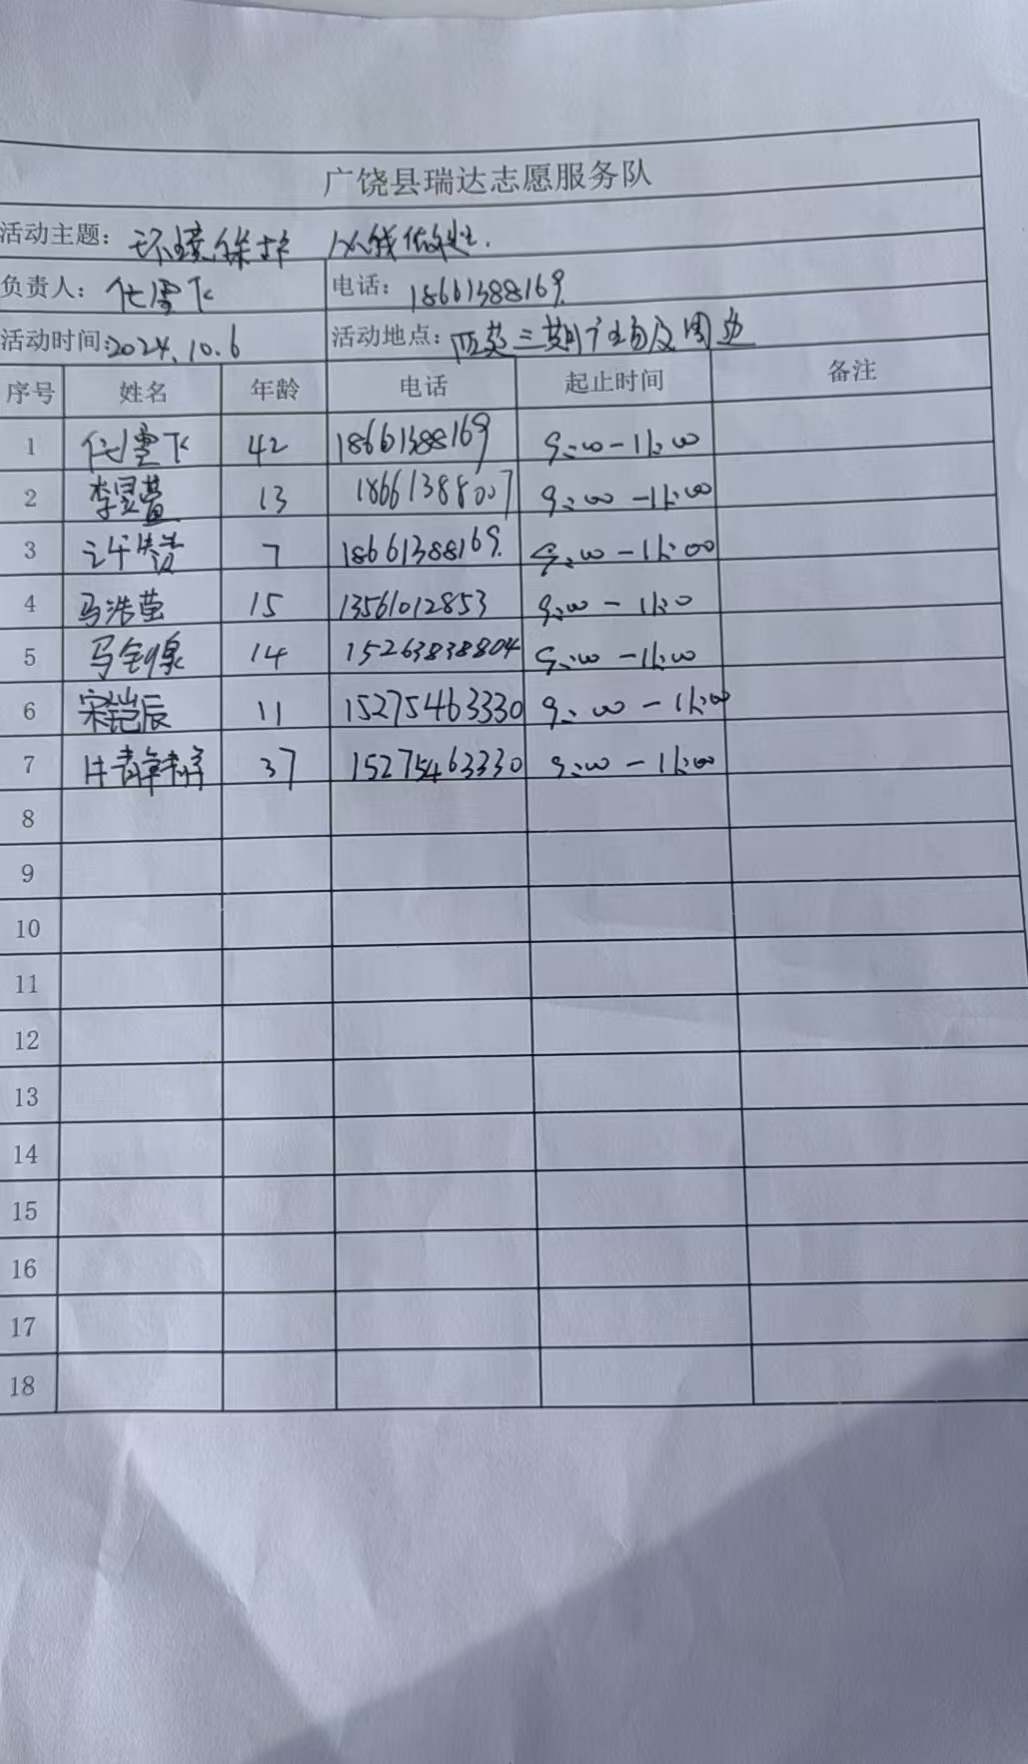 广饶县瑞达志愿服务队
活动主题：环境保护 从我做起.
负责人：代雪下 电话：18661388169.
活动时间：2024.10.6 活动地点：三期广场及周边
序号 姓名 年龄 电话 起止时间 备注
1 代雪下 42 18661388169 9:00-11:00
2 李昱萱 13 18661388007 9:00-11:00
3 7 18661388169. 9:00-11:00
4 马浩萤 15 13561012853 9:00-11:0
5 马剑泉 14 15263838804 9:00-11:00
6 宋铠辰 11 15275463330 9:00-11:00
7 37 15275463330 9:00-11:00
8
9
10
11
12
13
14
15
16
17
18